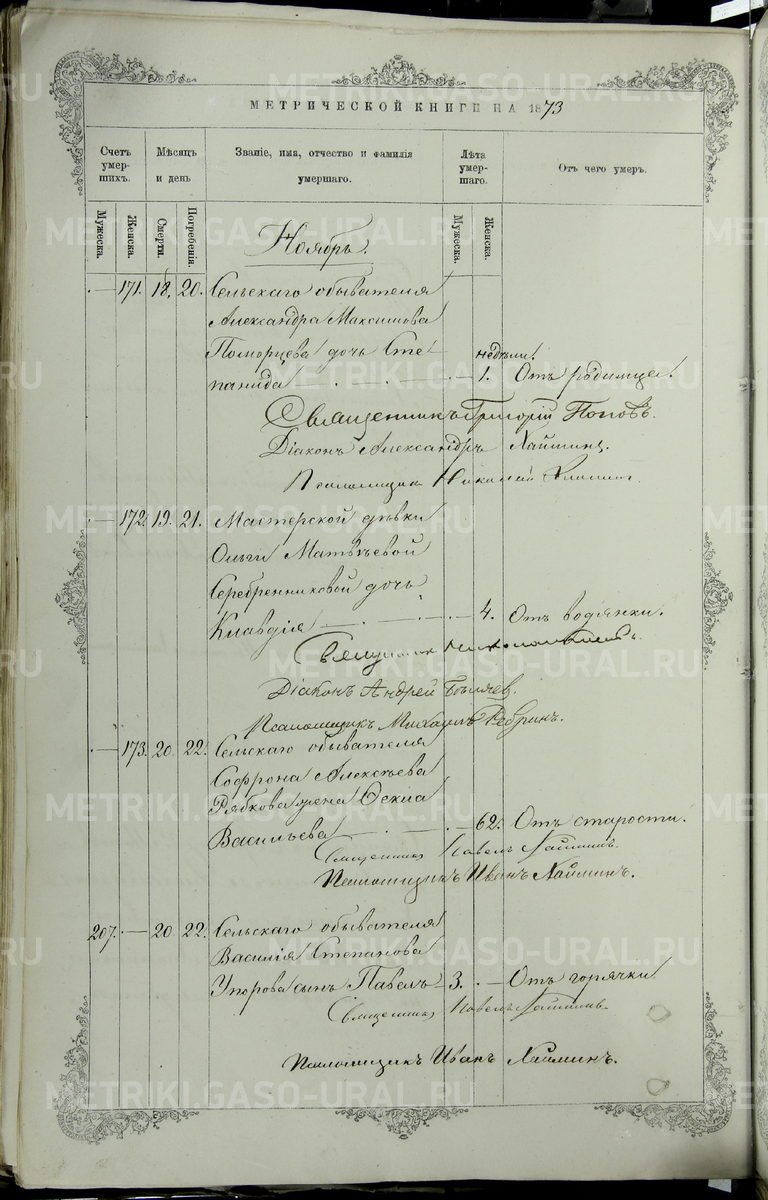 МЕТРИЧЕСКОЙ КНИГИ НА 1873
Счетъ умер- шихъ.
Мѣсяцъ и день
Званіе, имя, отчество и фамилія умершаго.
Лѣта умер- шаго.
Отъ чего умеръ.
Мужеска.
Женска.
Смерти.
Погребенія.
Мужеска.
Женска.
Ноябрь.
— 171. 18. 20. Сельскаго обывателя
Александра Максимова
Поморцева дочь Сте-
недѣли.
панида — 1. Отъ родимца.
Священникъ Григорій Поповъ.
Діаконъ Александръ Хайминъ.
Псаломщикъ Николай
— 172. 19. 21. Мастерской дѣвки
Ольги Матвѣевой
Серебренниковой дочь
Клавдія — 4. Отъ водянки.
Священникъ
Діаконъ Андрей
Псаломщикъ Михаилъ Ребринъ.
— 173. 20. 22. Сельскаго обывателя
Софрона Алексѣева
Рябкова жена Ѳекла
Васильева — 62. Отъ старости.
Священникъ Павелъ Хайминъ.
Псаломщикъ Иванъ Хайминъ.
207. — 20. 22. Сельскаго обывателя
Василія Степанова
Упорова сынъ Павелъ 3. — Отъ горячки
Священникъ Павелъ Хайминъ.
Псаломщикъ Иванъ Хайминъ.
METRIKI.GASO-URAL.RU